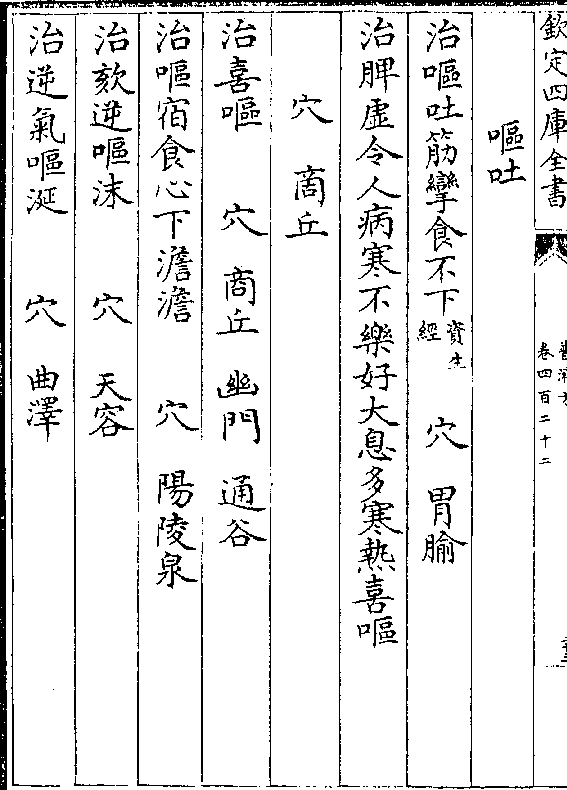 欽定四庫全書
卷四百二十二
嘔吐
治嘔吐筋攣食不下資生經 穴 胃腧
治脾虛令人病寒不樂好大息多寒熱喜嘔
穴 商丘
治喜嘔 穴 商丘 幽門 通谷
治嘔宿食心下澹澹 穴 陽陵泉
治欬逆嘔沫 穴 天容
治逆氣嘔涎 穴 曲澤